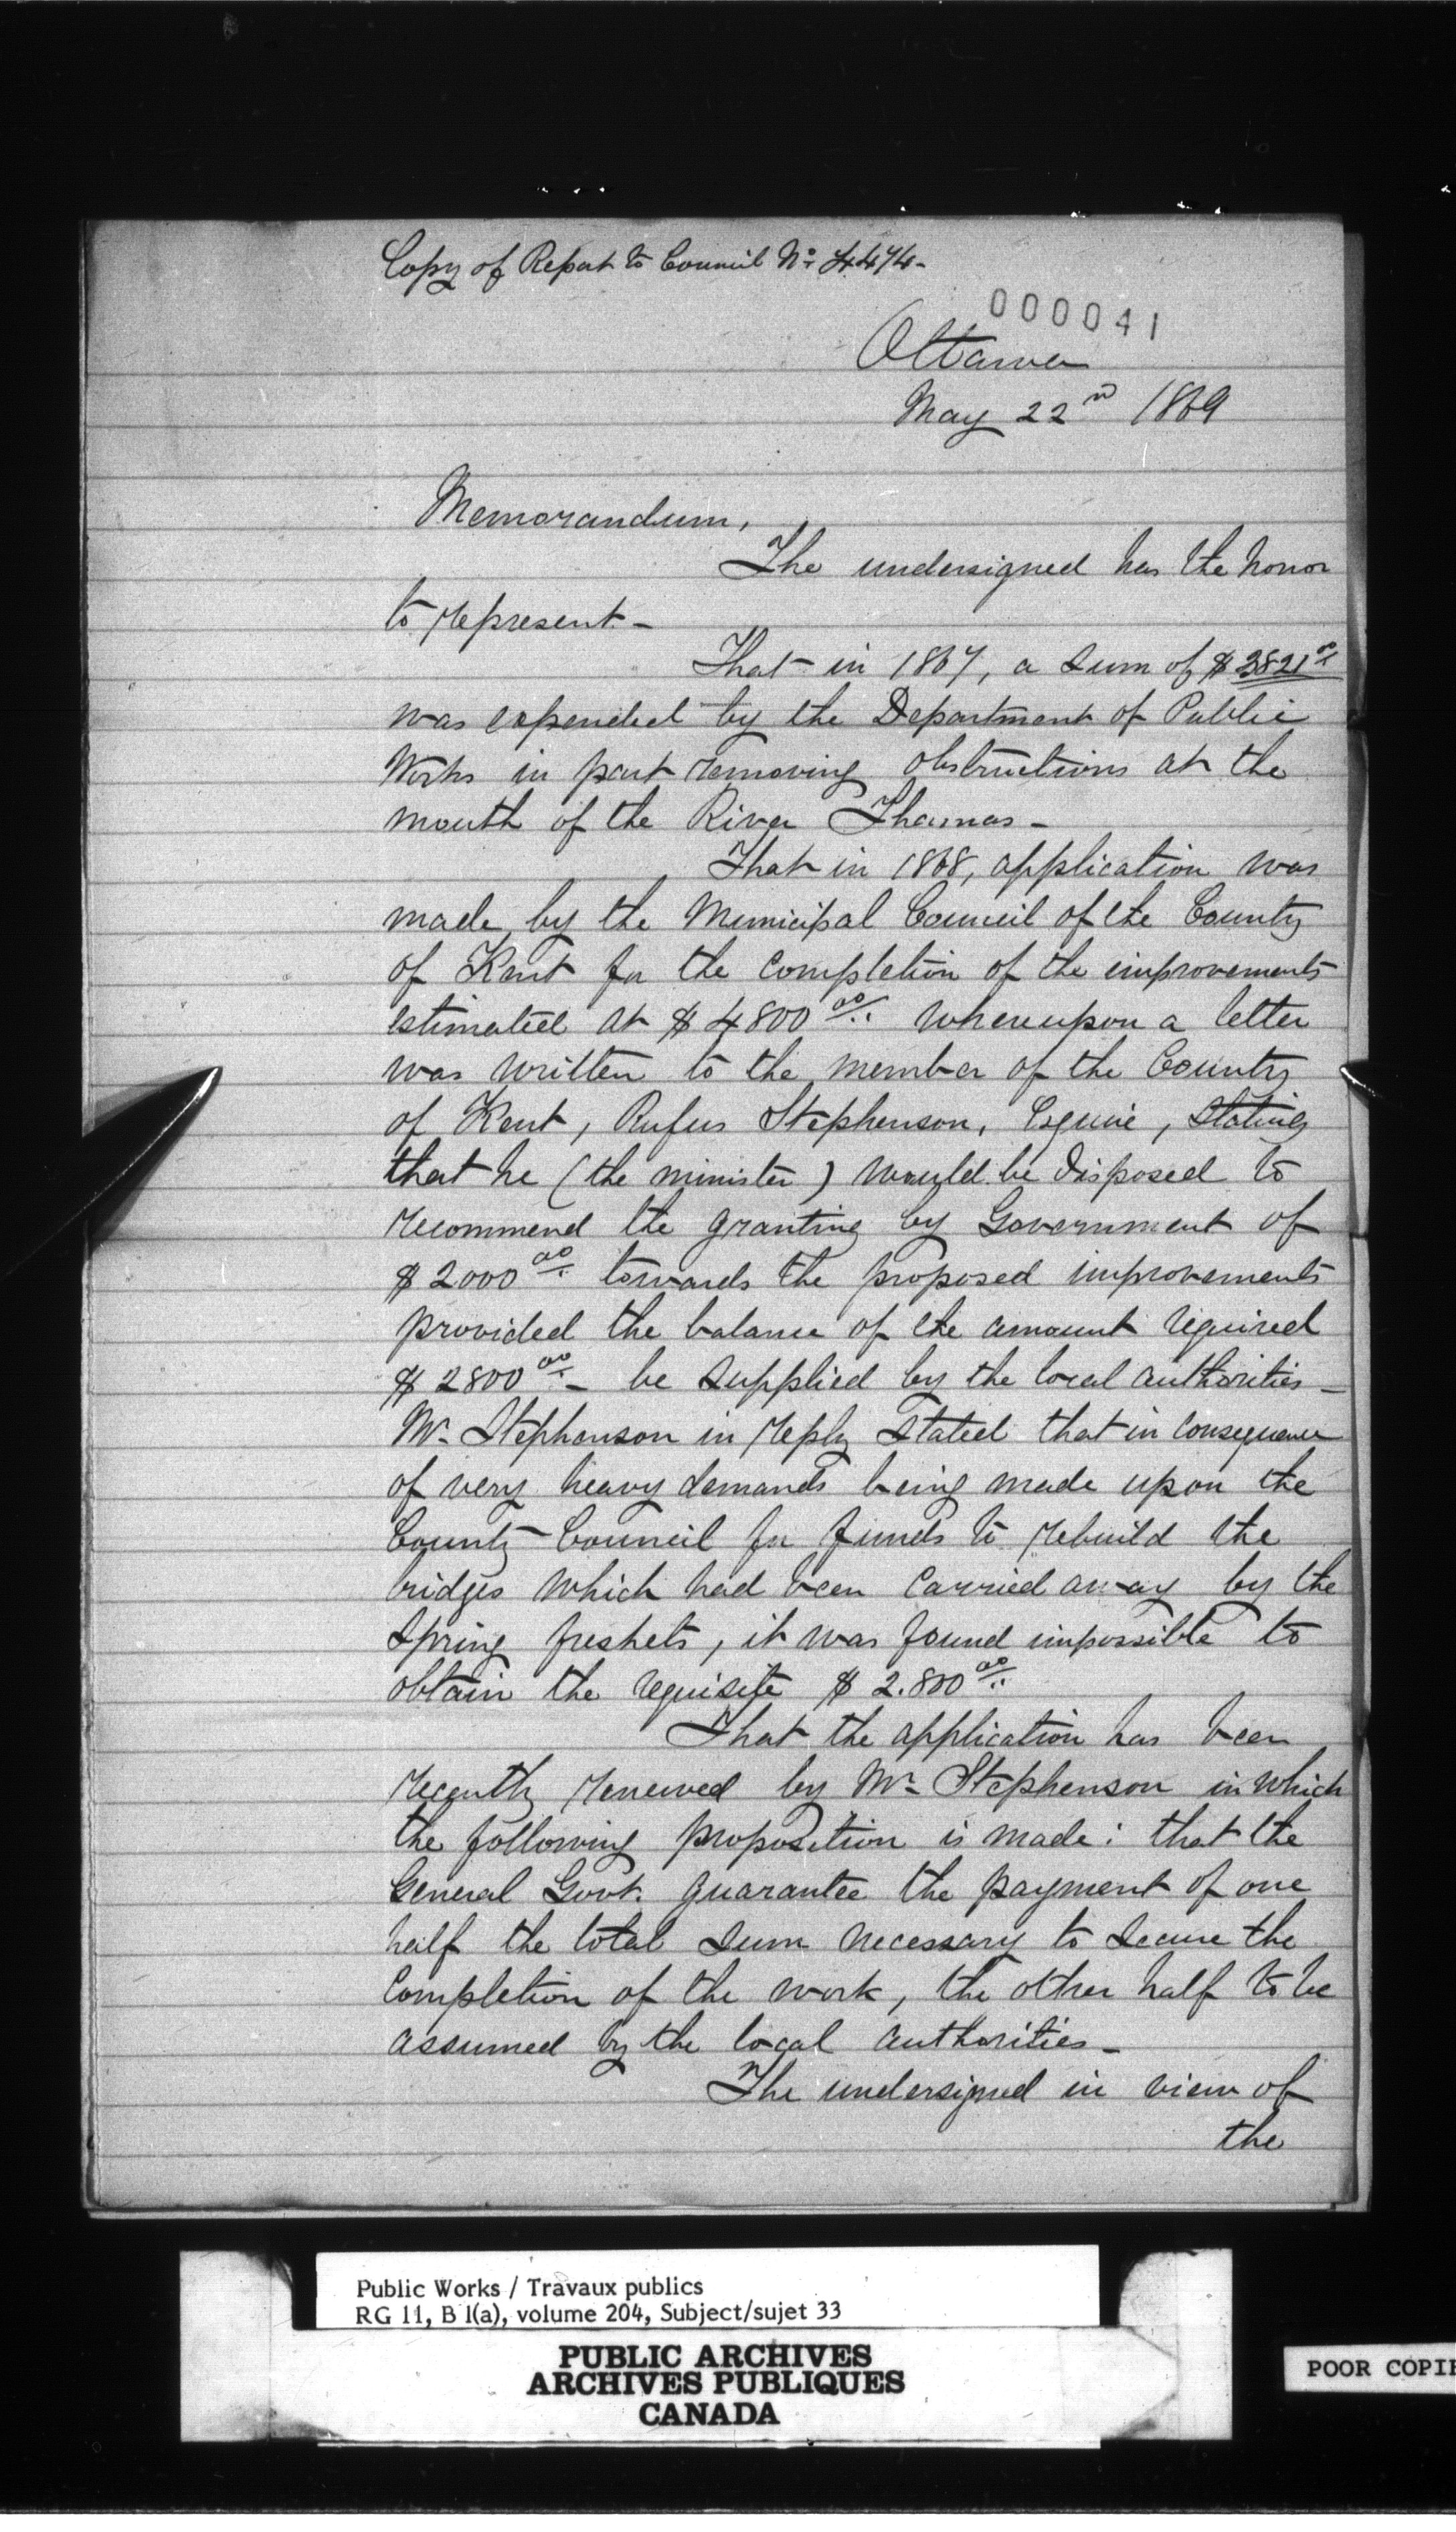 Copy of Report to Council No. 4474-
000041
Ottawa
May 22nd 1869
Memorandum,
The undersigned has the honor
to represent-
That in 1867, a sum of $3821.00
was expended by the Department of Public
Works in part removing obstructions at the
mouth of the River Thames-
That in 1868, application was
made by the Municipal Council of the County
of Kent for the completion of the improvements
estimated at $4800.00 whereupon a letter
was written to the member of the County
of Kent, Rufus Stephenson, Esquire, stating
that he (the minister) would be disposed to
recommend the granting by Government of
$2000.00 towards the proposed improvements
provided the balance of the amount required
$2800.00- be supplied by the local authorities-
Mr. Stephenson in reply stated that in consequence
of very heavy demands being made upon the
County Council for funds to rebuild the
bridges which had been carried away by the
spring freshets, it was found impossible to
obtain the requisite $2.800.00
That the application has been
recently renewed by Mr. Stephenson in which
the following proposition is made: that the
General Govt. guarantee the payment of one
half the total sum necessary to secure the
completion of the work, the other half to be
assumed by the local authorities-
The undersigned in view of
the
Public Works / Travaux publics
RG 11, B 1(a), volume 204, Subject/sujet 33
PUBLIC ARCHIVES
ARCHIVES PUBLIQUES
CANADA
POOR COPIE